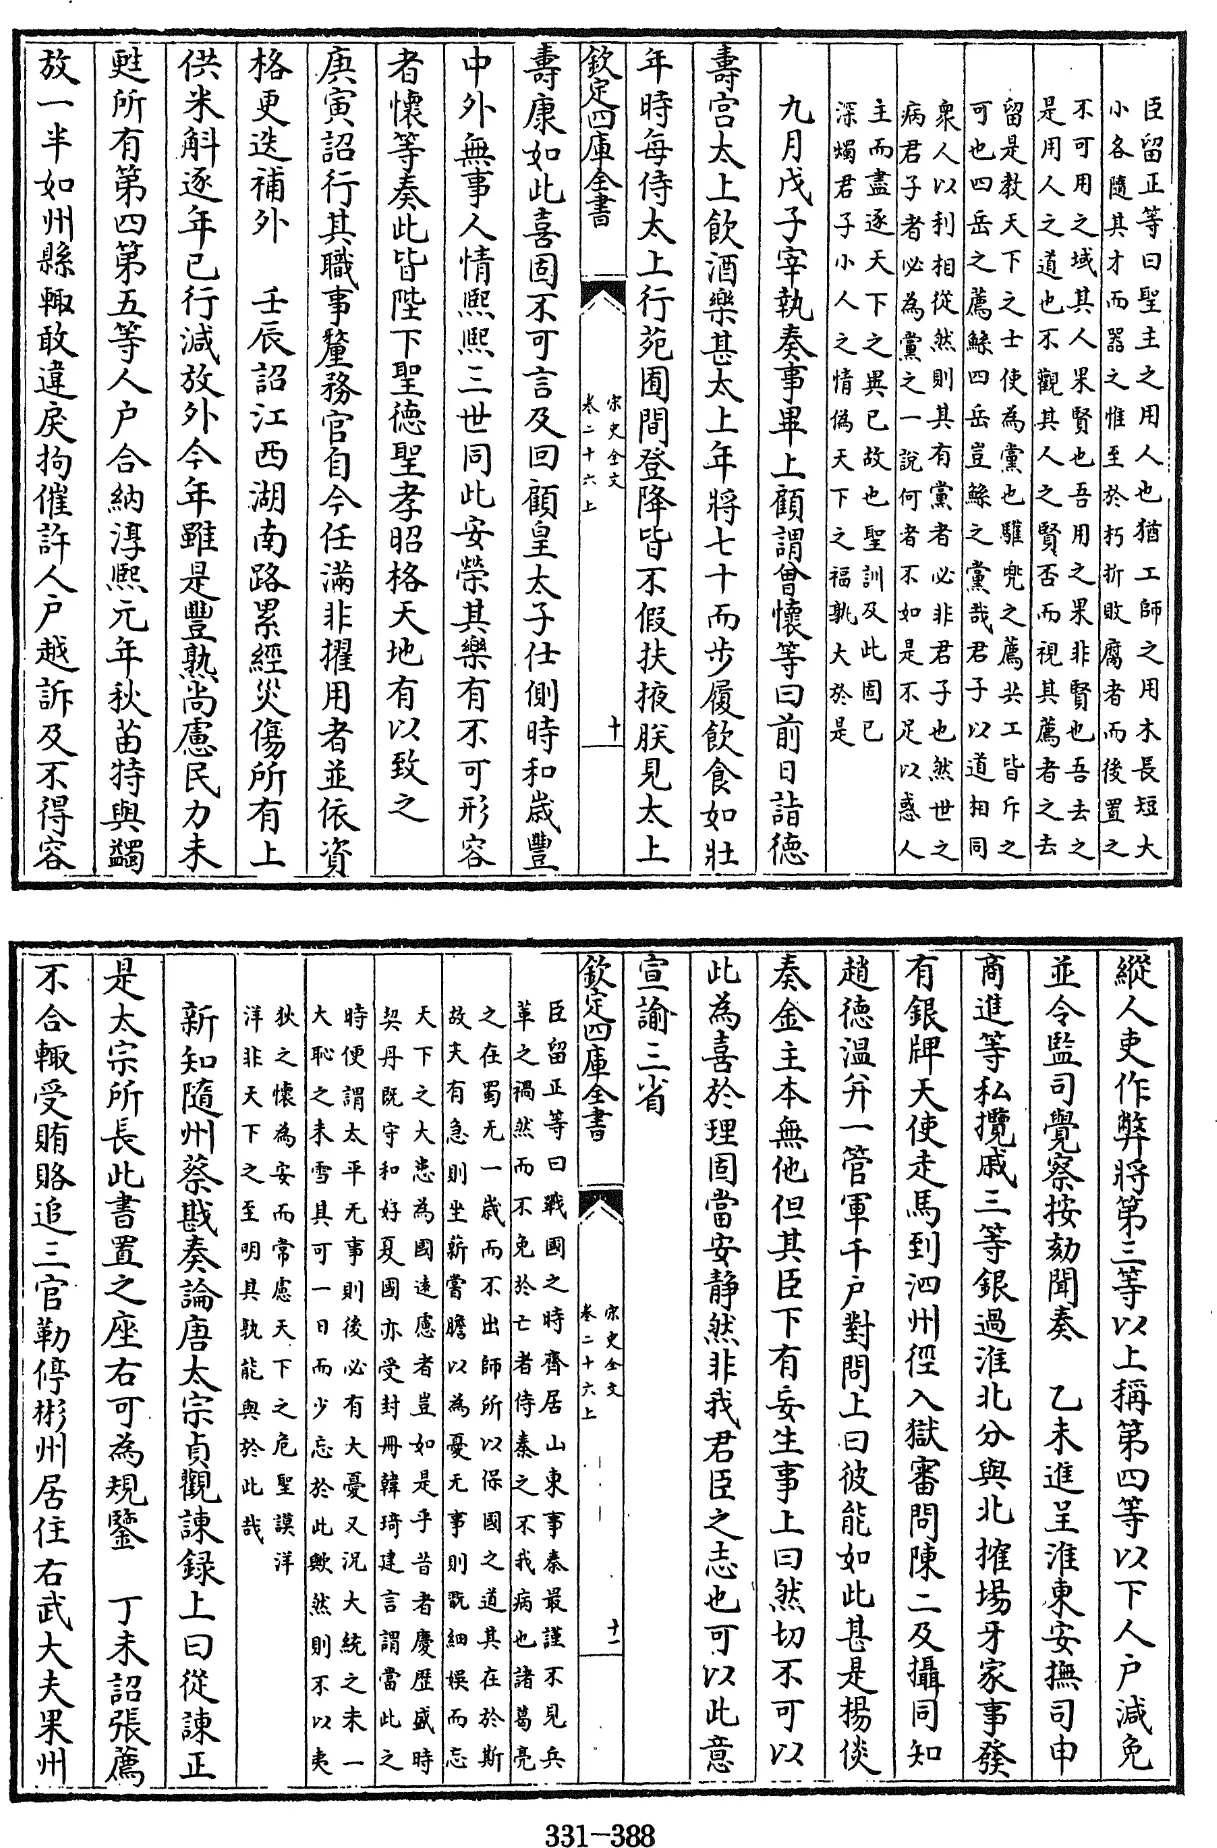 臣留正等曰聖主之用人也猶工師之用木長短大
小各隨其才而器之惟至於朽折敗腐者而後置之
不可用之域其人果賢也吾用之果非賢也吾去之
是用人之道也不觀其人之賢否而視其薦者之去
留是教天下之士使為黨也驩兜之薦共工皆斥之
可也四岳之薦鯀四岳豈鯀之黨哉君子以道相同
衆人以利相從然則其有黨者必非君子也然世之
病君子者必為黨之一說何者不如是不足以惑人
主而盡逐天下之異已故也聖訓及此固已
深燭君子小人之情偽天下之福孰大於是
九月戊子宰執奏事畢上顧謂曾懷等曰前日詣德
壽宫太上飲酒樂甚太上年將七十而步履飲食如壯
年時每侍太上行苑囿間登降皆不假扶掖朕見太上
欽定四庫全書
宋史全文
卷二十六上
十
壽康如此喜固不可言及回顧皇太子仕側時和歲豐
中外無事人情熙熙三世同此安榮其樂有不可形容
者懷等奏此皆陛下聖德聖孝昭格天地有以致之
庚寅詔行其職事釐務官自今任滿非擢用者並依資
格更迭補外　壬辰詔江西湖南路累經災傷所有上
供米斛逐年已行減放外今年雖是豐熟尚慮民力未
甦所有第四第五等人户合納淳熙元年秋苗特與蠲
放一半如州縣輙敢違戾拘催許人户越訴及不得容
縱人吏作弊將第三等以上稱第四等以下人户減免
並令監司覺察按劾聞奏　乙未進呈淮東安撫司申
商進等私攬戚三等銀過淮北分與北搉場牙家事發
有銀牌天使走馬到泗州徑入獄審問陳二及攝同知
趙德温并一管軍千户對問上曰彼能如此甚是揚倓
奏金主本無他但其臣下有妄生事上曰然切不可以
此為喜於理固當安静然非我君臣之志也可以此意
宣諭三省
欽定四庫全書
宋史全文
卷二十六上
十一
臣留正等曰戰國之時齊居山東事秦最謹不見兵
革之禍然而不免於亡者侍秦之不我病也諸葛亮
之在蜀无一歲而不出師所以保國之道其在於斯
故夫有急則坐薪嘗膽以為憂无事則翫細娱而忘
天下之大患為國遠慮者豈如是乎昔者慶歴盛時
契丹既守和好夏國亦受封冊韓琦建言謂當此之
時便謂太平无事則後必有大憂又况大統之未一
大恥之未雪具可一日而少忘於此歟然則不以夷
狄之懷為安而常慮天下之危聖謨洋
洋非天下之至明其孰能與於此哉
新知隨州蔡戡奏論唐太宗貞觀諫録上曰從諫正
是太宗所長此書置之座右可為規鑒　丁未詔張薦
不合輙受賄賂追三官勒停彬州居住右武大夫果州
331-388